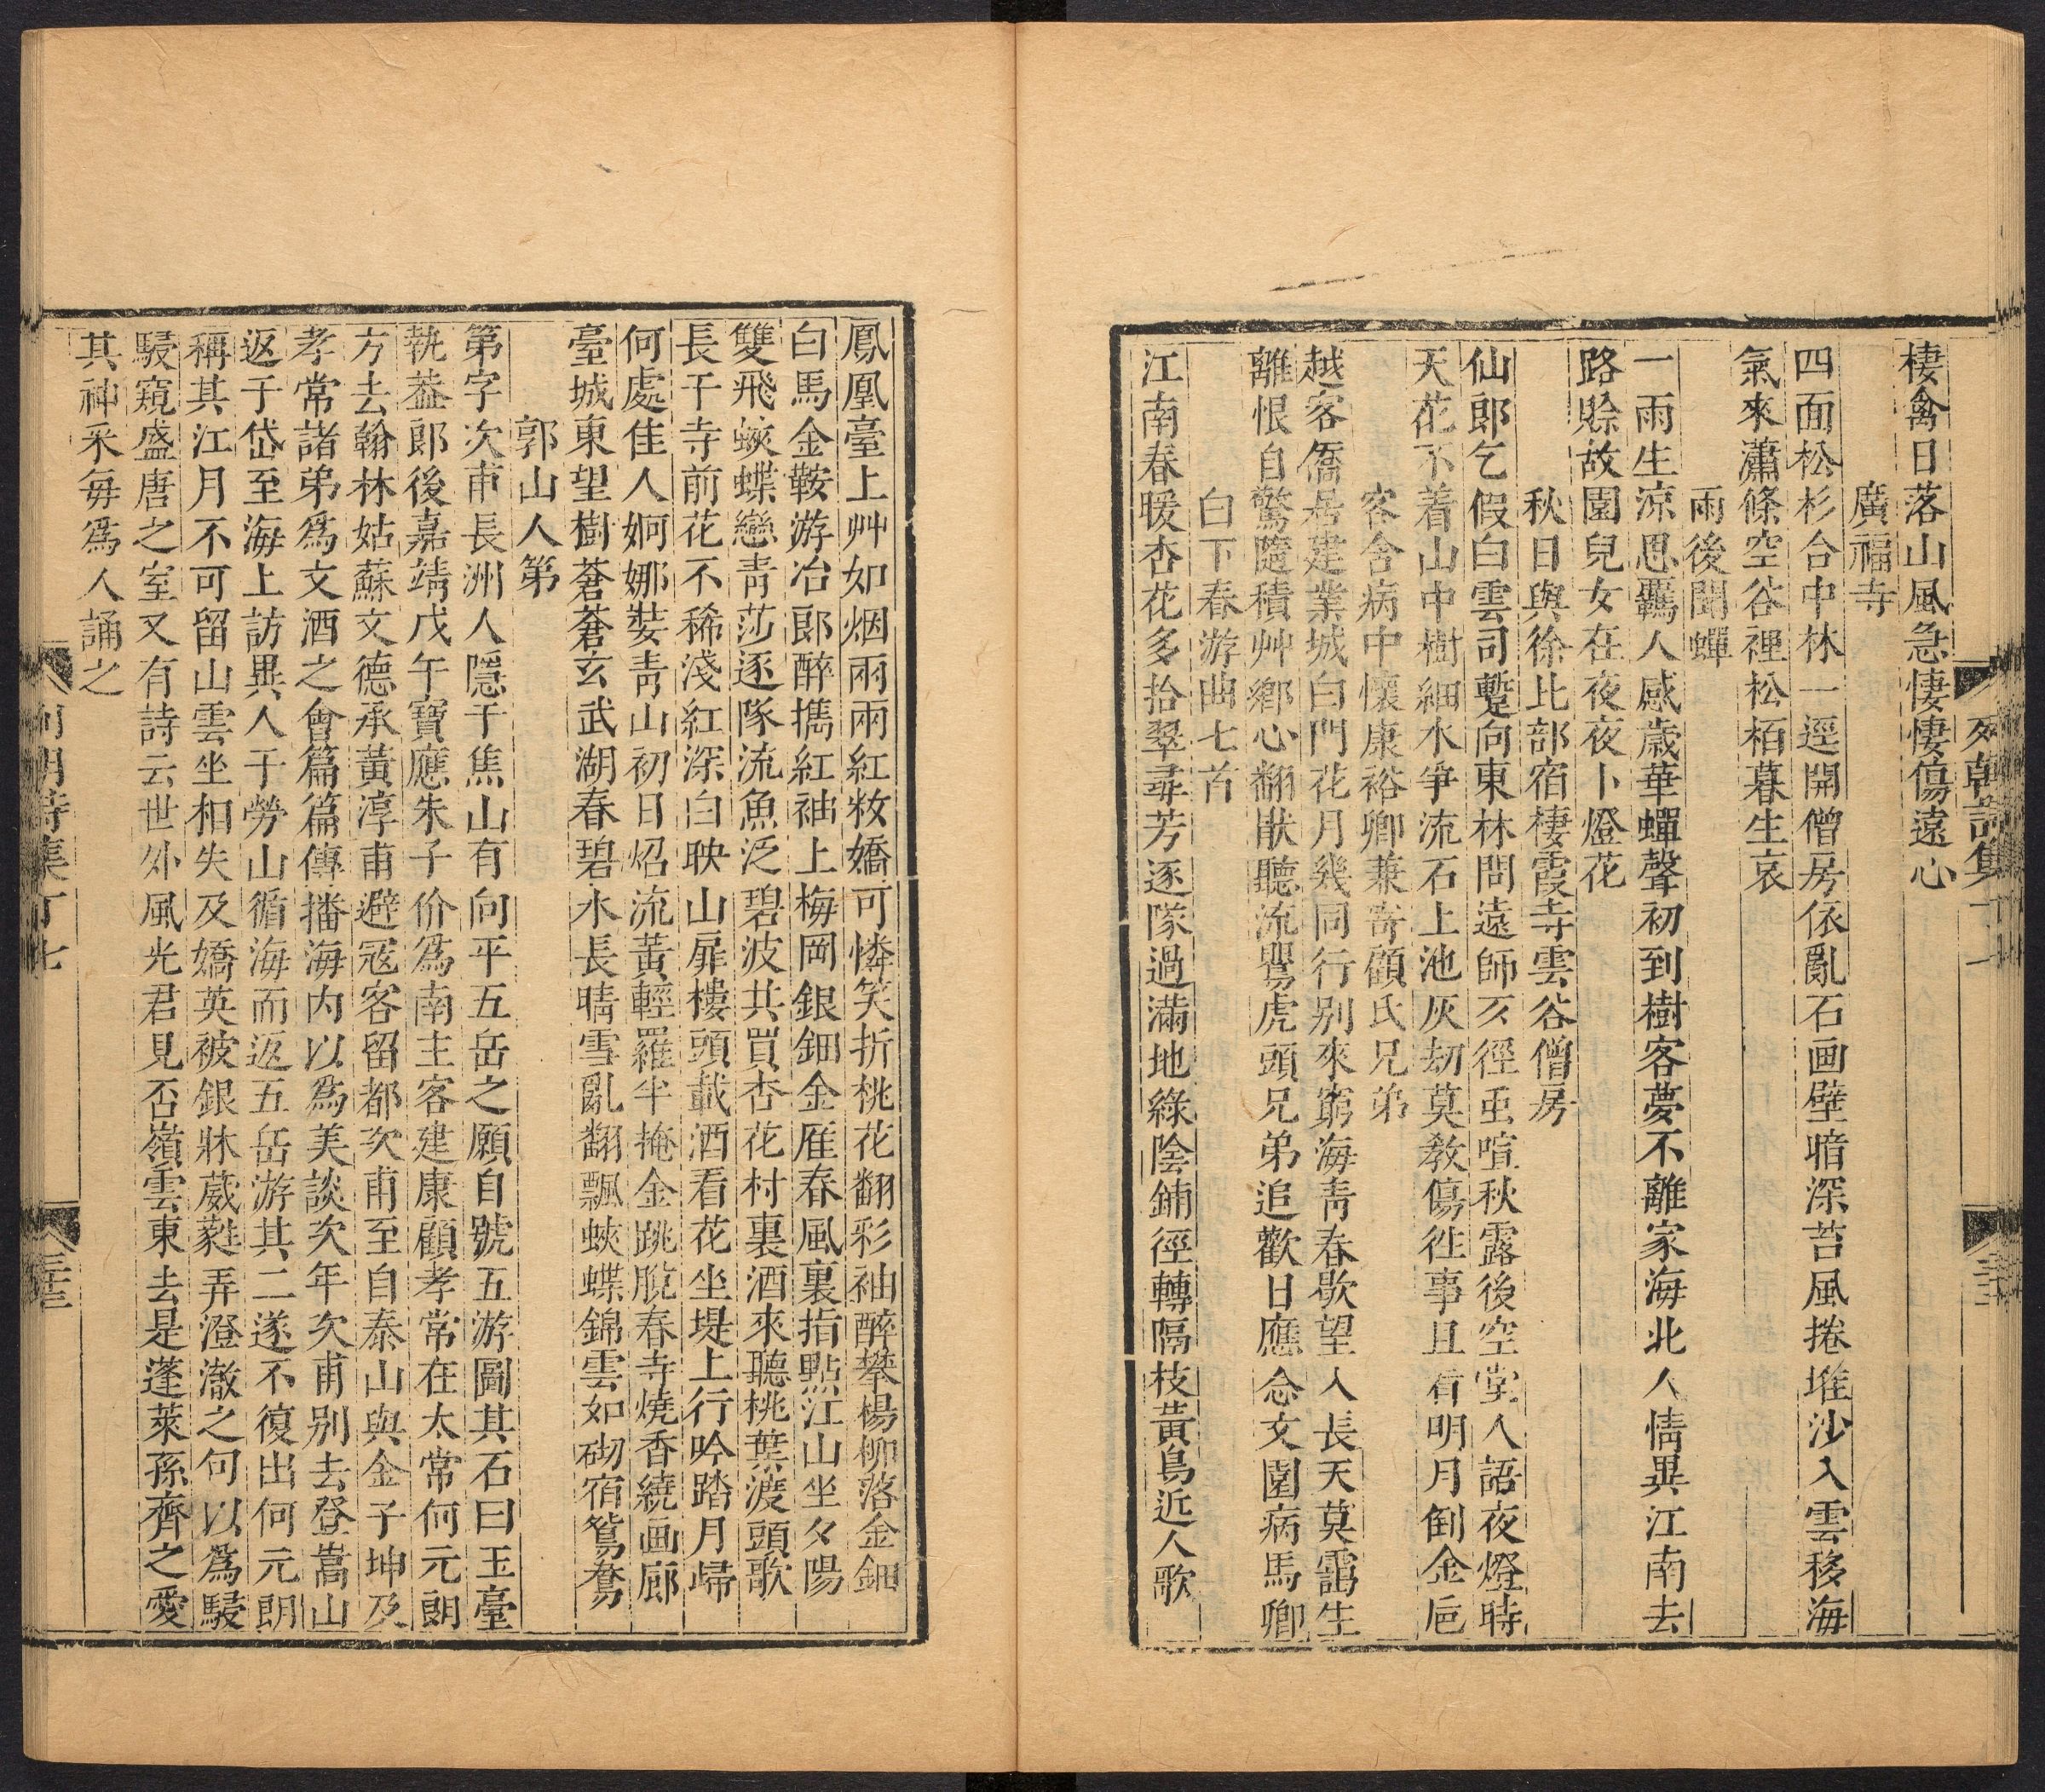 棲禽日落山風急悽悽傷遠心
廣福寺
四面松杉合中林一逕開僧房依亂石画壁暗深苔風捲堆沙入雲移海
氣來瀟條空谷裡松栢暮生哀
雨後聞蟬
一雨生涼思羈人感歲華蟬聲初到樹客夢不離家海北人情異江南去
路賒故園兒女在夜夜卜燈花
秋日與徐比部宿棲霞寺雲谷僧房
仙郎乞假白雲司蹔向東林問遠師夕徑虫喧秋露後空堂人語夜燈時
天花不着山中樹細水爭流石上池灰刼莫教傷徃事且看明月倒金巵
客舍病中懷康裕卿兼寄顧氏兄弟
越客僑居建業城白門花月幾同行别來窮海青春歇望入長天莫靄生
離恨自驚隨積艸鄉心翻猒聽流鸎虎頭兄弟追歡日應念文園病馬卿
白下春游曲七首
江南春暖杏花多拾翠尋芳逐隊過滿地綠陰鋪徑轉隔枝黃鳥近人歌
鳳凰臺上艸如烟雨雨紅粧嬌可憐笑折桃花翻彩袖醉攀楊柳落金鈿
白馬金鞍游冶郎醉擕紅袖上梅岡銀鈿金雁春風裏指點江山坐夕陽
雙飛蛺蝶戀青莎逐隊流魚泛碧波共買杏花村裏酒來聽桃葉渡頭歌
長干寺前花不稀淺紅深白映山扉樓頭載酒看花坐堤上行吟踏月歸
何處佳人婀娜裝青山初日炤流黃輕羅半掩金跳脫春寺燒香繞画廊
臺城東望樹蒼蒼玄武湖春碧水長晴雪亂翻飄蛺蝶錦雲如砌宿鴛鴦
郭山人第
第字次甫長洲人隱于焦山有向平五岳之願自號五游圖其石曰玉臺
執葢郎後嘉靖戊午寶應朱子价爲南主客建康顧孝常在太常何元朗
方去翰林姑蘇文德承黃淳甫避寇客留都次甫至自泰山與金子坤及
孝常諸弟爲文酒之會篇篇傳播海内以爲美談次年次甫别去登嵩山
返于岱至海上訪異人于勞山循海而返五岳游其二遂不復出何元朗
稱其江月不可留山雲坐相失及嬌英被銀牀葳蕤弄澄澈之句以爲駸
駸窺盛唐之室又有詩云世外風光君見否嶺雲東去是蓬萊孫齊之愛
其神采每爲人誦之